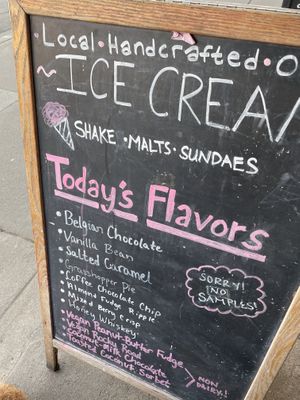 Local • Handcrafted • O
~ ICE CREA
SHAKE • MALTS • SUNDAES
Today's Flavors
• Belgian Chocolate
• Vanilla Bean
• Salted Caramel
• Grasshopper Pie
• Coffee Chocolate Chip
• Almond Fudge Ripple
• Mixed Berry Crisp
• Honey Whiskey
• Vegan Peanut-Butter Fudge
• Vegan Rocky Road
• Coconut-Milk Chocolate
• Toasted Coconut Sorbet
NON
DAIRY!
SORRY!
NO
SAMPLES!